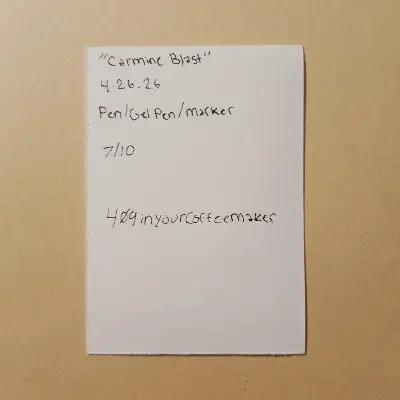 "Carmine Blast"
4.26.26
Pen/Gel Pen/marker
7/10
409inyourcoffeemaker